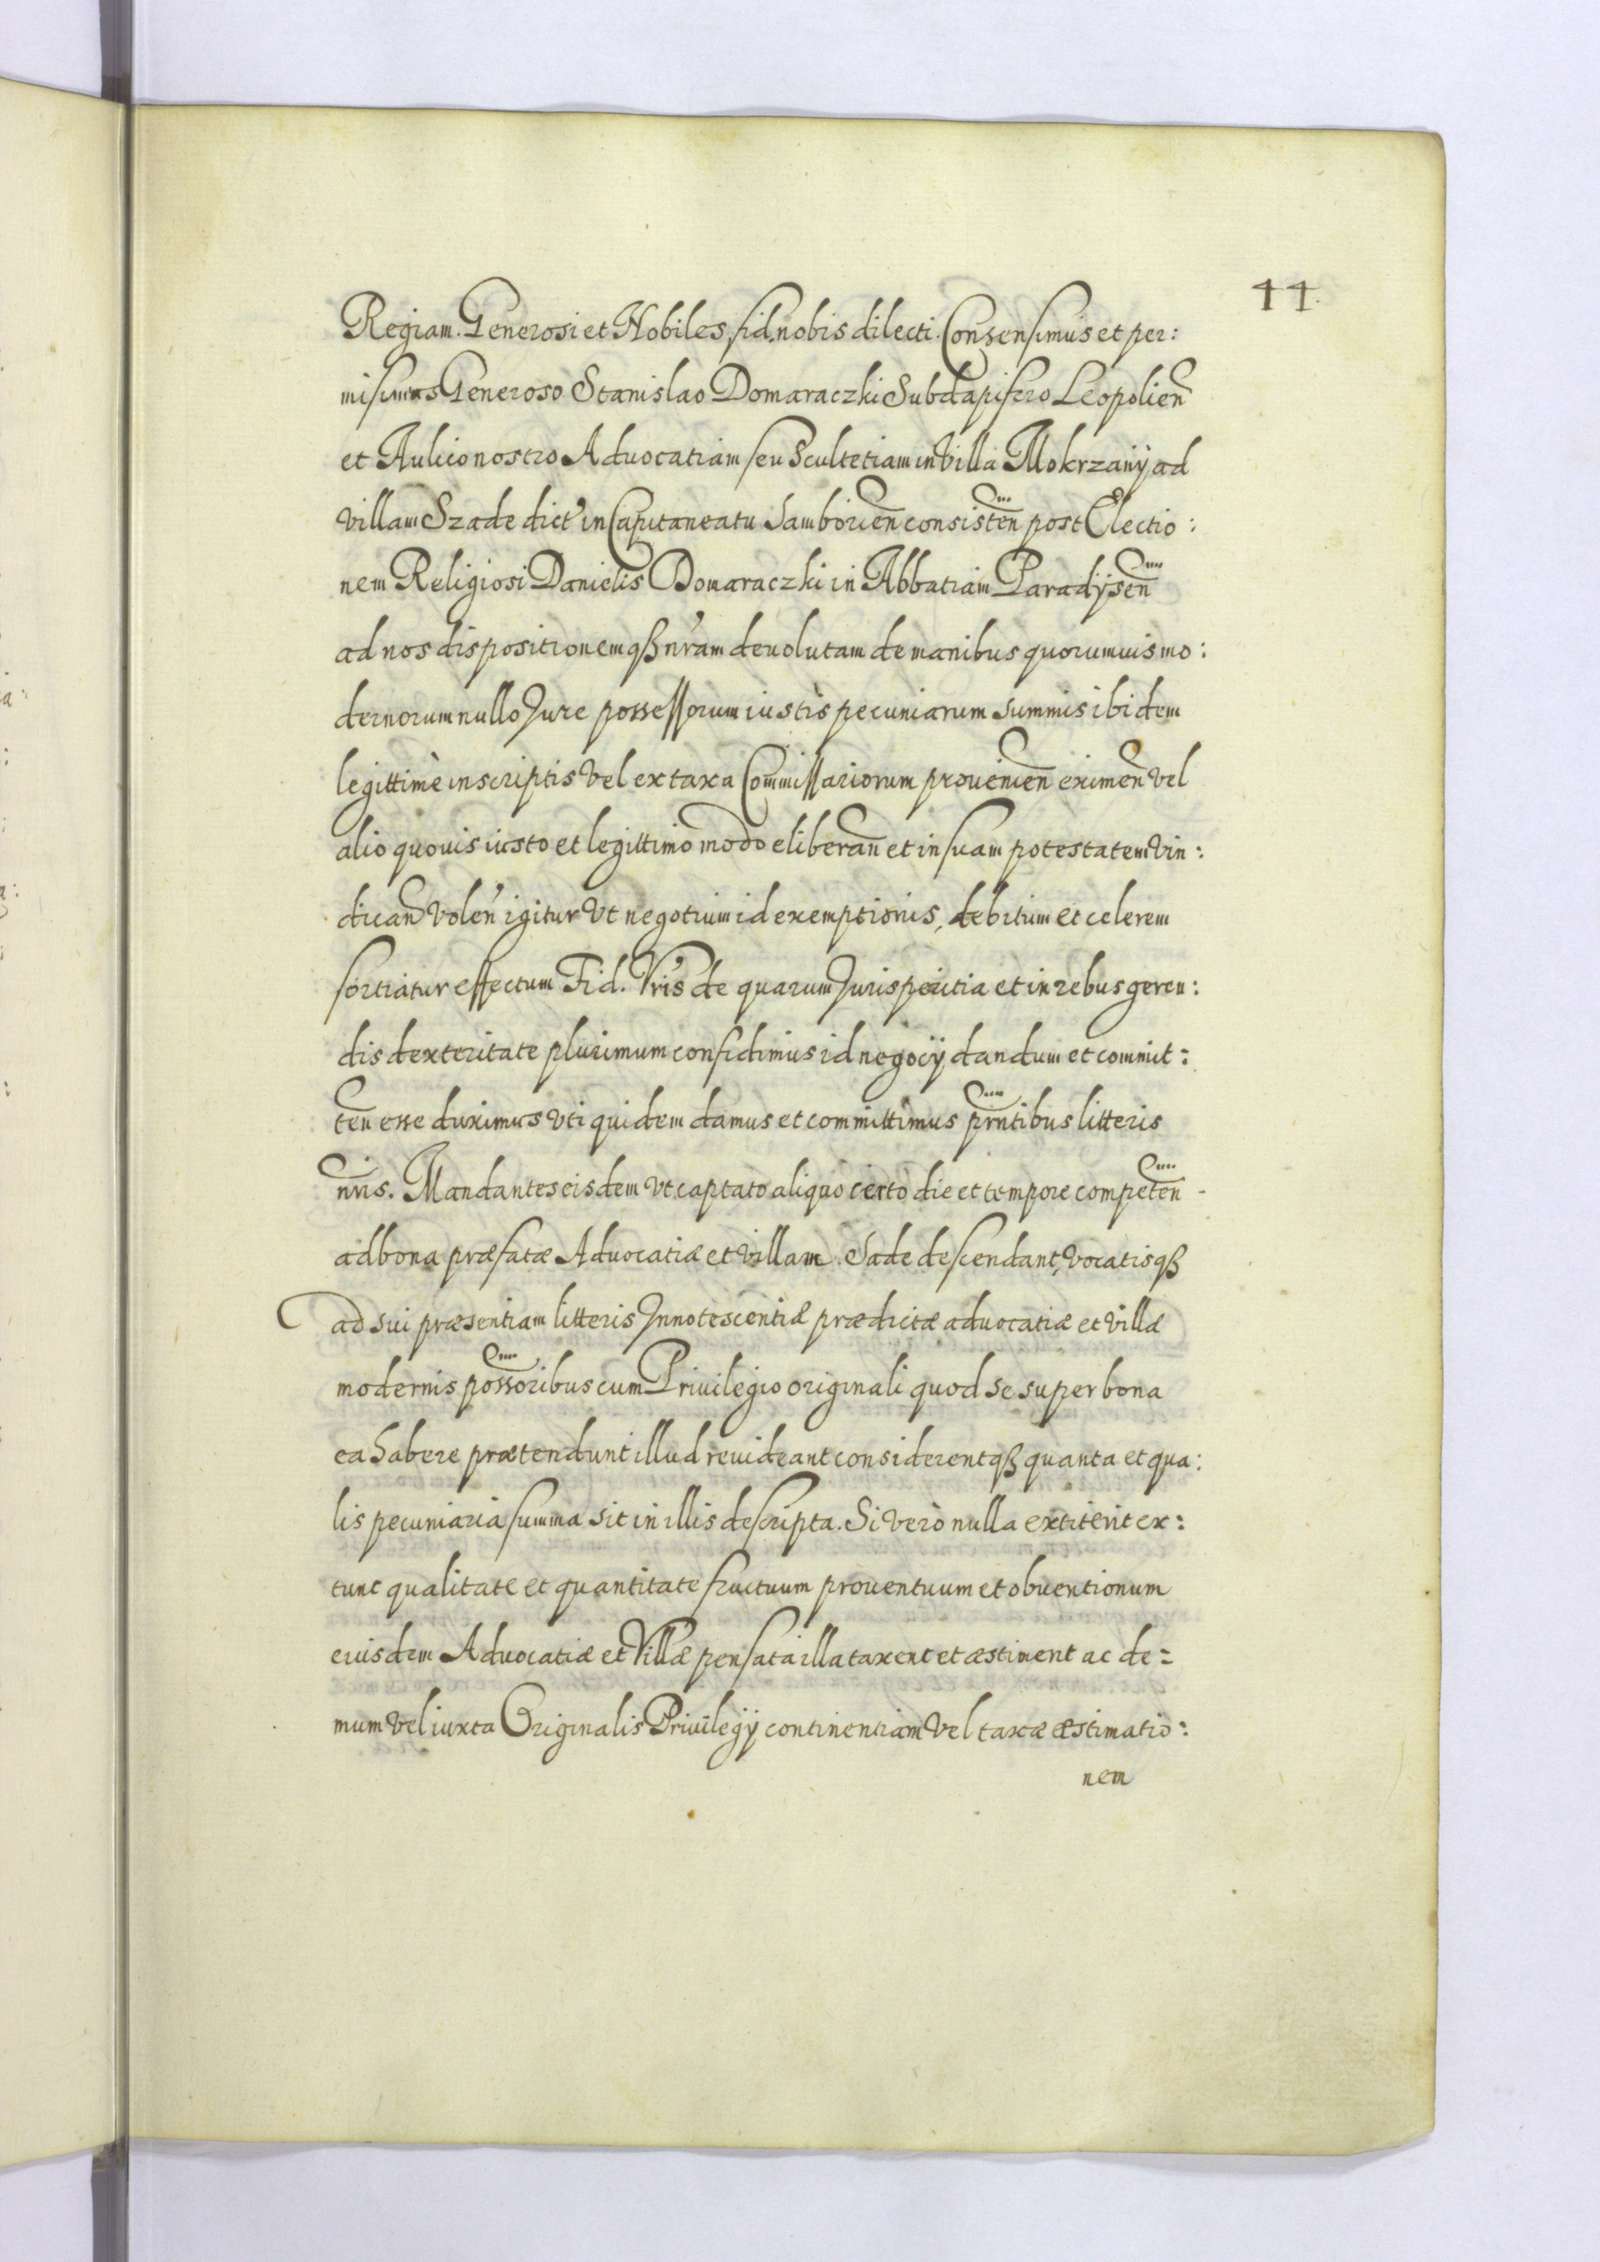 11.
Regiam. Generosi et Nobiles, fid. nobis dilecti. Consensimus et per:
misimus Generoso Stanislao Domaraczki Subdapifero Leopolien
et Aulico nostro Advocatiam seu Scultetiam in Villa Mokrzany ad
villam Szade dict' in Capitaneatu Samborien consisten post Electio:
nem Religiosi Danielis Domaraczki in Abbatiam Paradÿsen
ad nos dispositionemqß nr'am deuolutam de manibus quorumuis mo:
dernorum nullo Jure possessorum iustis pecuniarum summis ibidem
legittimè inscriptis vel ex taxa Commissariorum prouenien eximen vel
alio quouis iusto et legittimo modo eliberan et in suam potestatem vin:
dican volen' igitur vt negotium id exemptionis, debitum et celerem
sortiatur effectum Fid. Vr'is de quarum Jurisperitia et in rebus geren:
dis dexteritate plurimum confidimus id negocÿ dandum et commit:
ten esse duximus vti quidem damus et committimus prntibus litteris
nris. Mandantes eisdem vt captato aliquo certo die et tempore competen
ad bona præfatæ Advocatiæ et villam Sade descendant, vocatisqß
ad sui præsentiam litteris Innotescentiæ prædictæ advocatiæ et villæ
modernis possoribus cum Priuilegio originali quod se super bona
ea habere prætendunt illud reuideant considerentqß quanta et qua:
lis pecuniaria summa sit in illis descripta. Si verò nulla extiterit ex:
tunc qualitate et quantitate fructuum prouentuum et obuentionum
eiusdem Advocatiæ et Villæ pensata illa taxent et æstiment ac de:
mum vel iuxta Originalis Priuilegÿ continentiam vel taxæ æstimatio:
nem